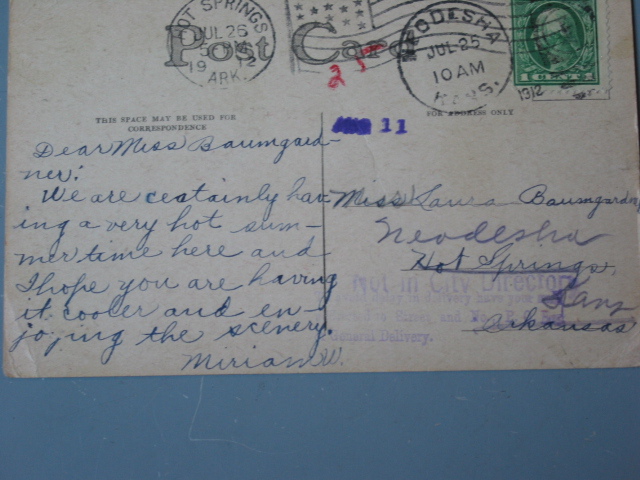 HOT SPRINGS
JUL 26
1912
ARK.
Post Card
NEODESHA
JUL 25
10 AM
KANS.
1912
25
THIS SPACE MAY BE USED FOR
CORRESPONDENCE
FOR ADDRESS ONLY
AUG 11
Dear Miss Baumgard-
ner:
We are ceatainly hav-
ing a very hot sum-
mer time here and
I hope you are having
it cooler and en-
joying the scenery.
Miriam W.
Miss Laura Baumgardner
Neodesha
Hot Springs,
Kans
Arkansas
Not in City Directory
delay in delivery have your mail
Street and No.
General Delivery.